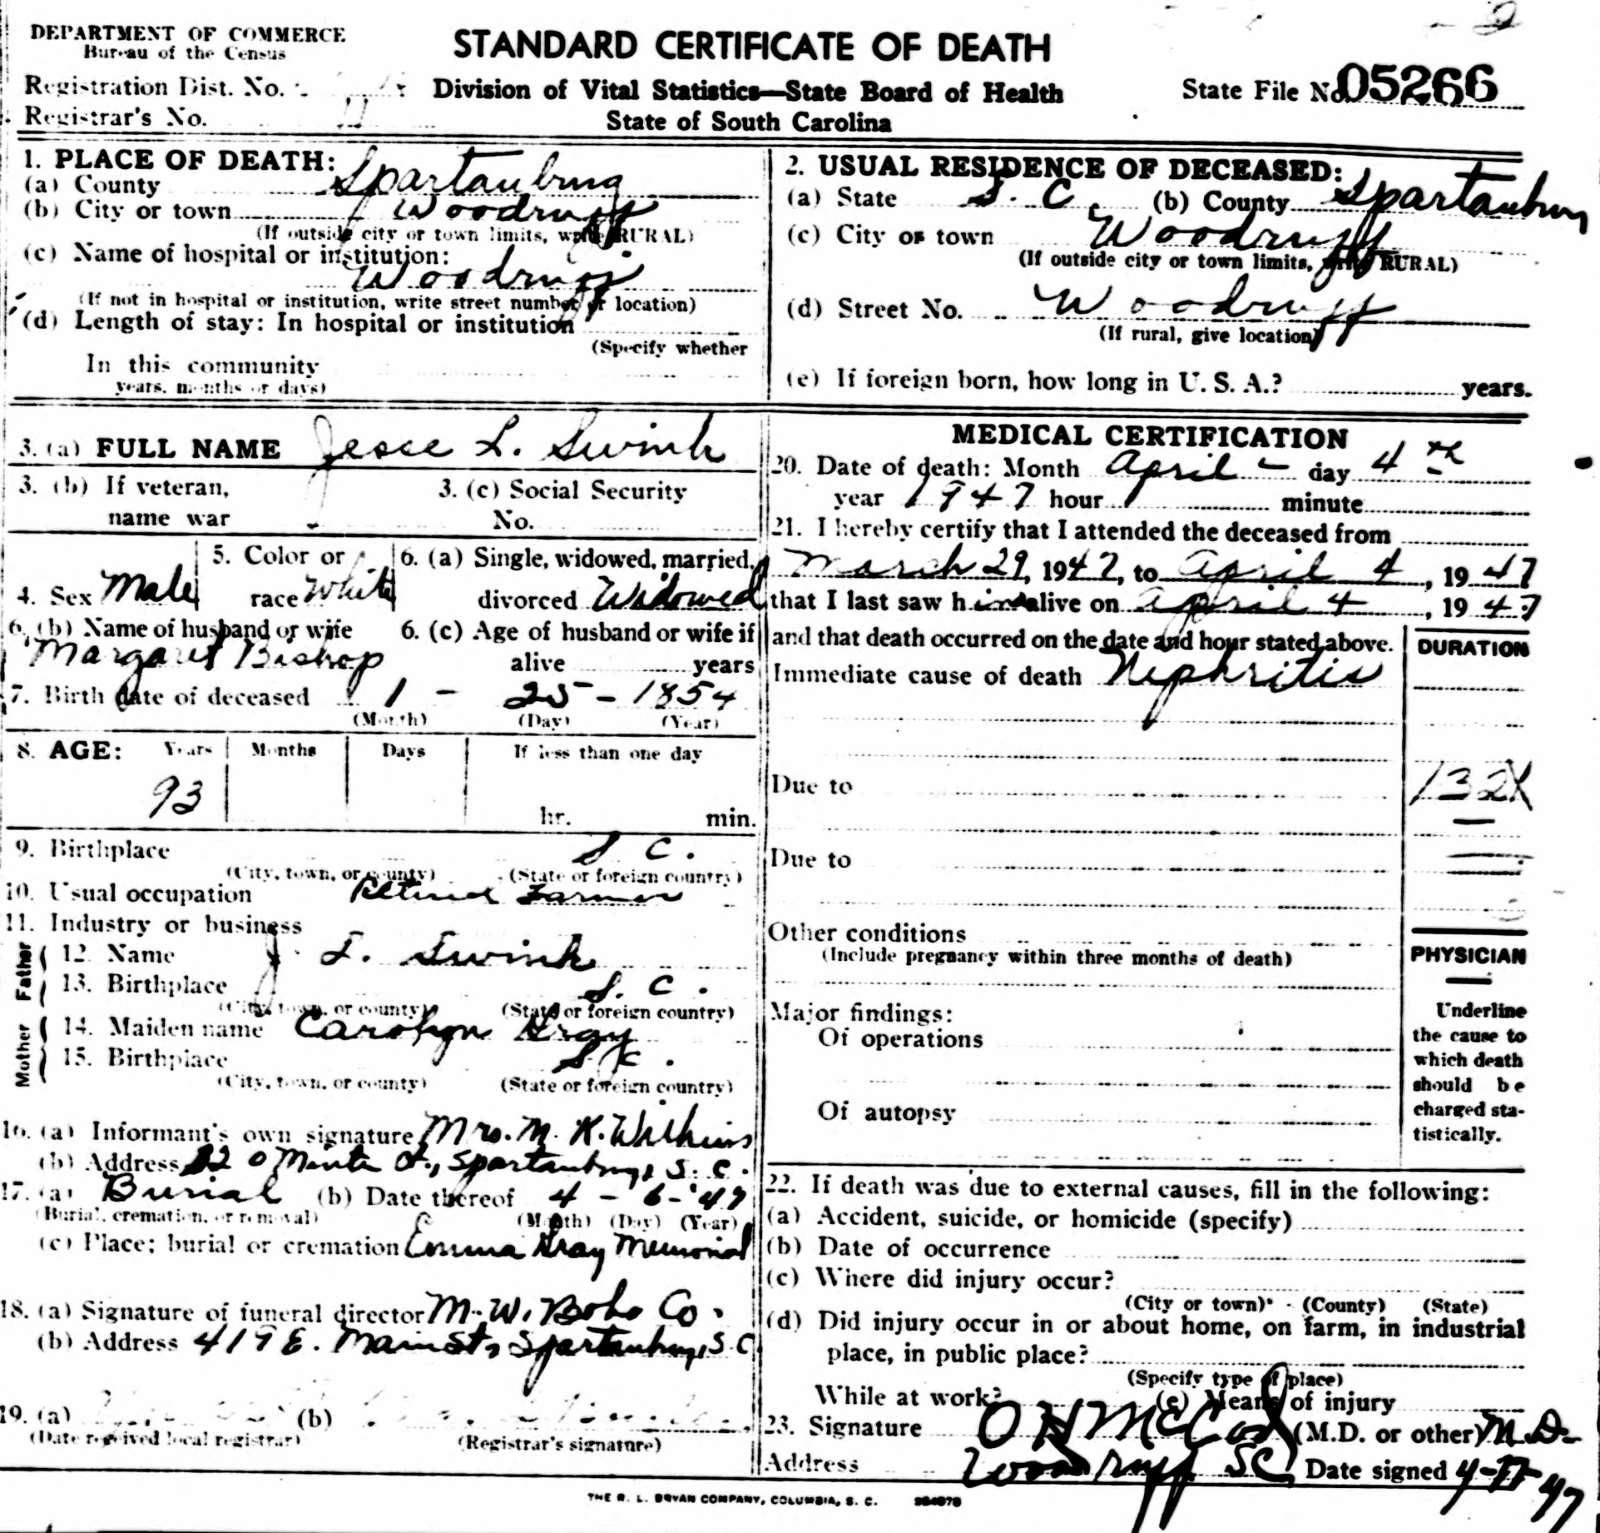 DEPARTMENT OF COMMERCE
Bureau of the Census
Registration Dist. No.
Registrar's No.
STANDARD CERTIFICATE OF DEATH
Division of Vital Statistics—State Board of Health
State of South Carolina
State File No. 05266
1. PLACE OF DEATH:
(a) County Spartanburg
(b) City or town Woodruff
(If outside city or town limits, write RURAL)
(c) Name of hospital or institution:
Woodruff
(If not in hospital or institution, write street number or location)
(d) Length of stay: In hospital or institution
(Specify whether
In this community
years, months or days)
2. USUAL RESIDENCE OF DECEASED:
(a) State S. C. (b) County Spartanburg
(c) City or town Woodruff
(If outside city or town limits, write RURAL)
(d) Street No. Woodruff
(If rural, give location)
(e) If foreign born, how long in U. S. A.? years.
3. (a) FULL NAME Jesse L. Swink
3. (b) If veteran,
name war
3. (c) Social Security
No.
4. Sex Male
5. Color or
race White
6. (a) Single, widowed, married,
divorced Widowed
6. (b) Name of husband or wife
Margaret Bishop
6. (c) Age of husband or wife if
alive years
7. Birth date of deceased 1 - 25 - 1854
(Month) (Day) (Year)
8. AGE: Years Months Days If less than one day
93
hr. min.
9. Birthplace S C.
(City, town, or county) (State or foreign country)
10. Usual occupation Retired Farmer
11. Industry or business
Father
12. Name J. L. Swink
13. Birthplace S. C.
(City, town, or county) (State or foreign country)
Mother
14. Maiden name Carolyn Gray
15. Birthplace S C.
(City, town, or county) (State or foreign country)
16. (a) Informant's own signature Mrs. M. K. Wilkins
(b) Address St., Spartanburg, S. C.
17. (a) Burial (b) Date thereof 4 - 6 - '47
(Burial, cremation, or removal) (Month) (Day) (Year)
(c) Place; burial or cremation Emma Gray Memorial
18. (a) Signature of funeral director M. W. Bobo Co.
(b) Address 419 E. Main St., Spartanburg, S. C.
19. (a) (b)
(Date received local registrar) (Registrar's signature)
MEDICAL CERTIFICATION
20. Date of death: Month April day 4th
year 1947 hour minute
21. I hereby certify that I attended the deceased from
March 29, 1947, to April 4, 1947
that I last saw him alive on April 4, 1947
and that death occurred on the date and hour stated above.
DURATION
Immediate cause of death Nephritis
Due to
132X
Due to
Other conditions
(Include pregnancy within three months of death)
Major findings:
Of operations
Of autopsy
PHYSICIAN
Underline
the cause to
which death
should be
charged sta-
tistically.
22. If death was due to external causes, fill in the following:
(a) Accident, suicide, or homicide (specify)
(b) Date of occurrence
(c) Where did injury occur?
(City or town) (County) (State)
(d) Did injury occur in or about home, on farm, in industrial
place, in public place?
(Specify type of place)
While at work? (e) Means of injury
23. Signature O H McCord (M.D. or other) M.D.
Address Woodruff SC Date signed 4-17-47
THE R. L. BRYAN COMPANY, COLUMBIA, S. C.